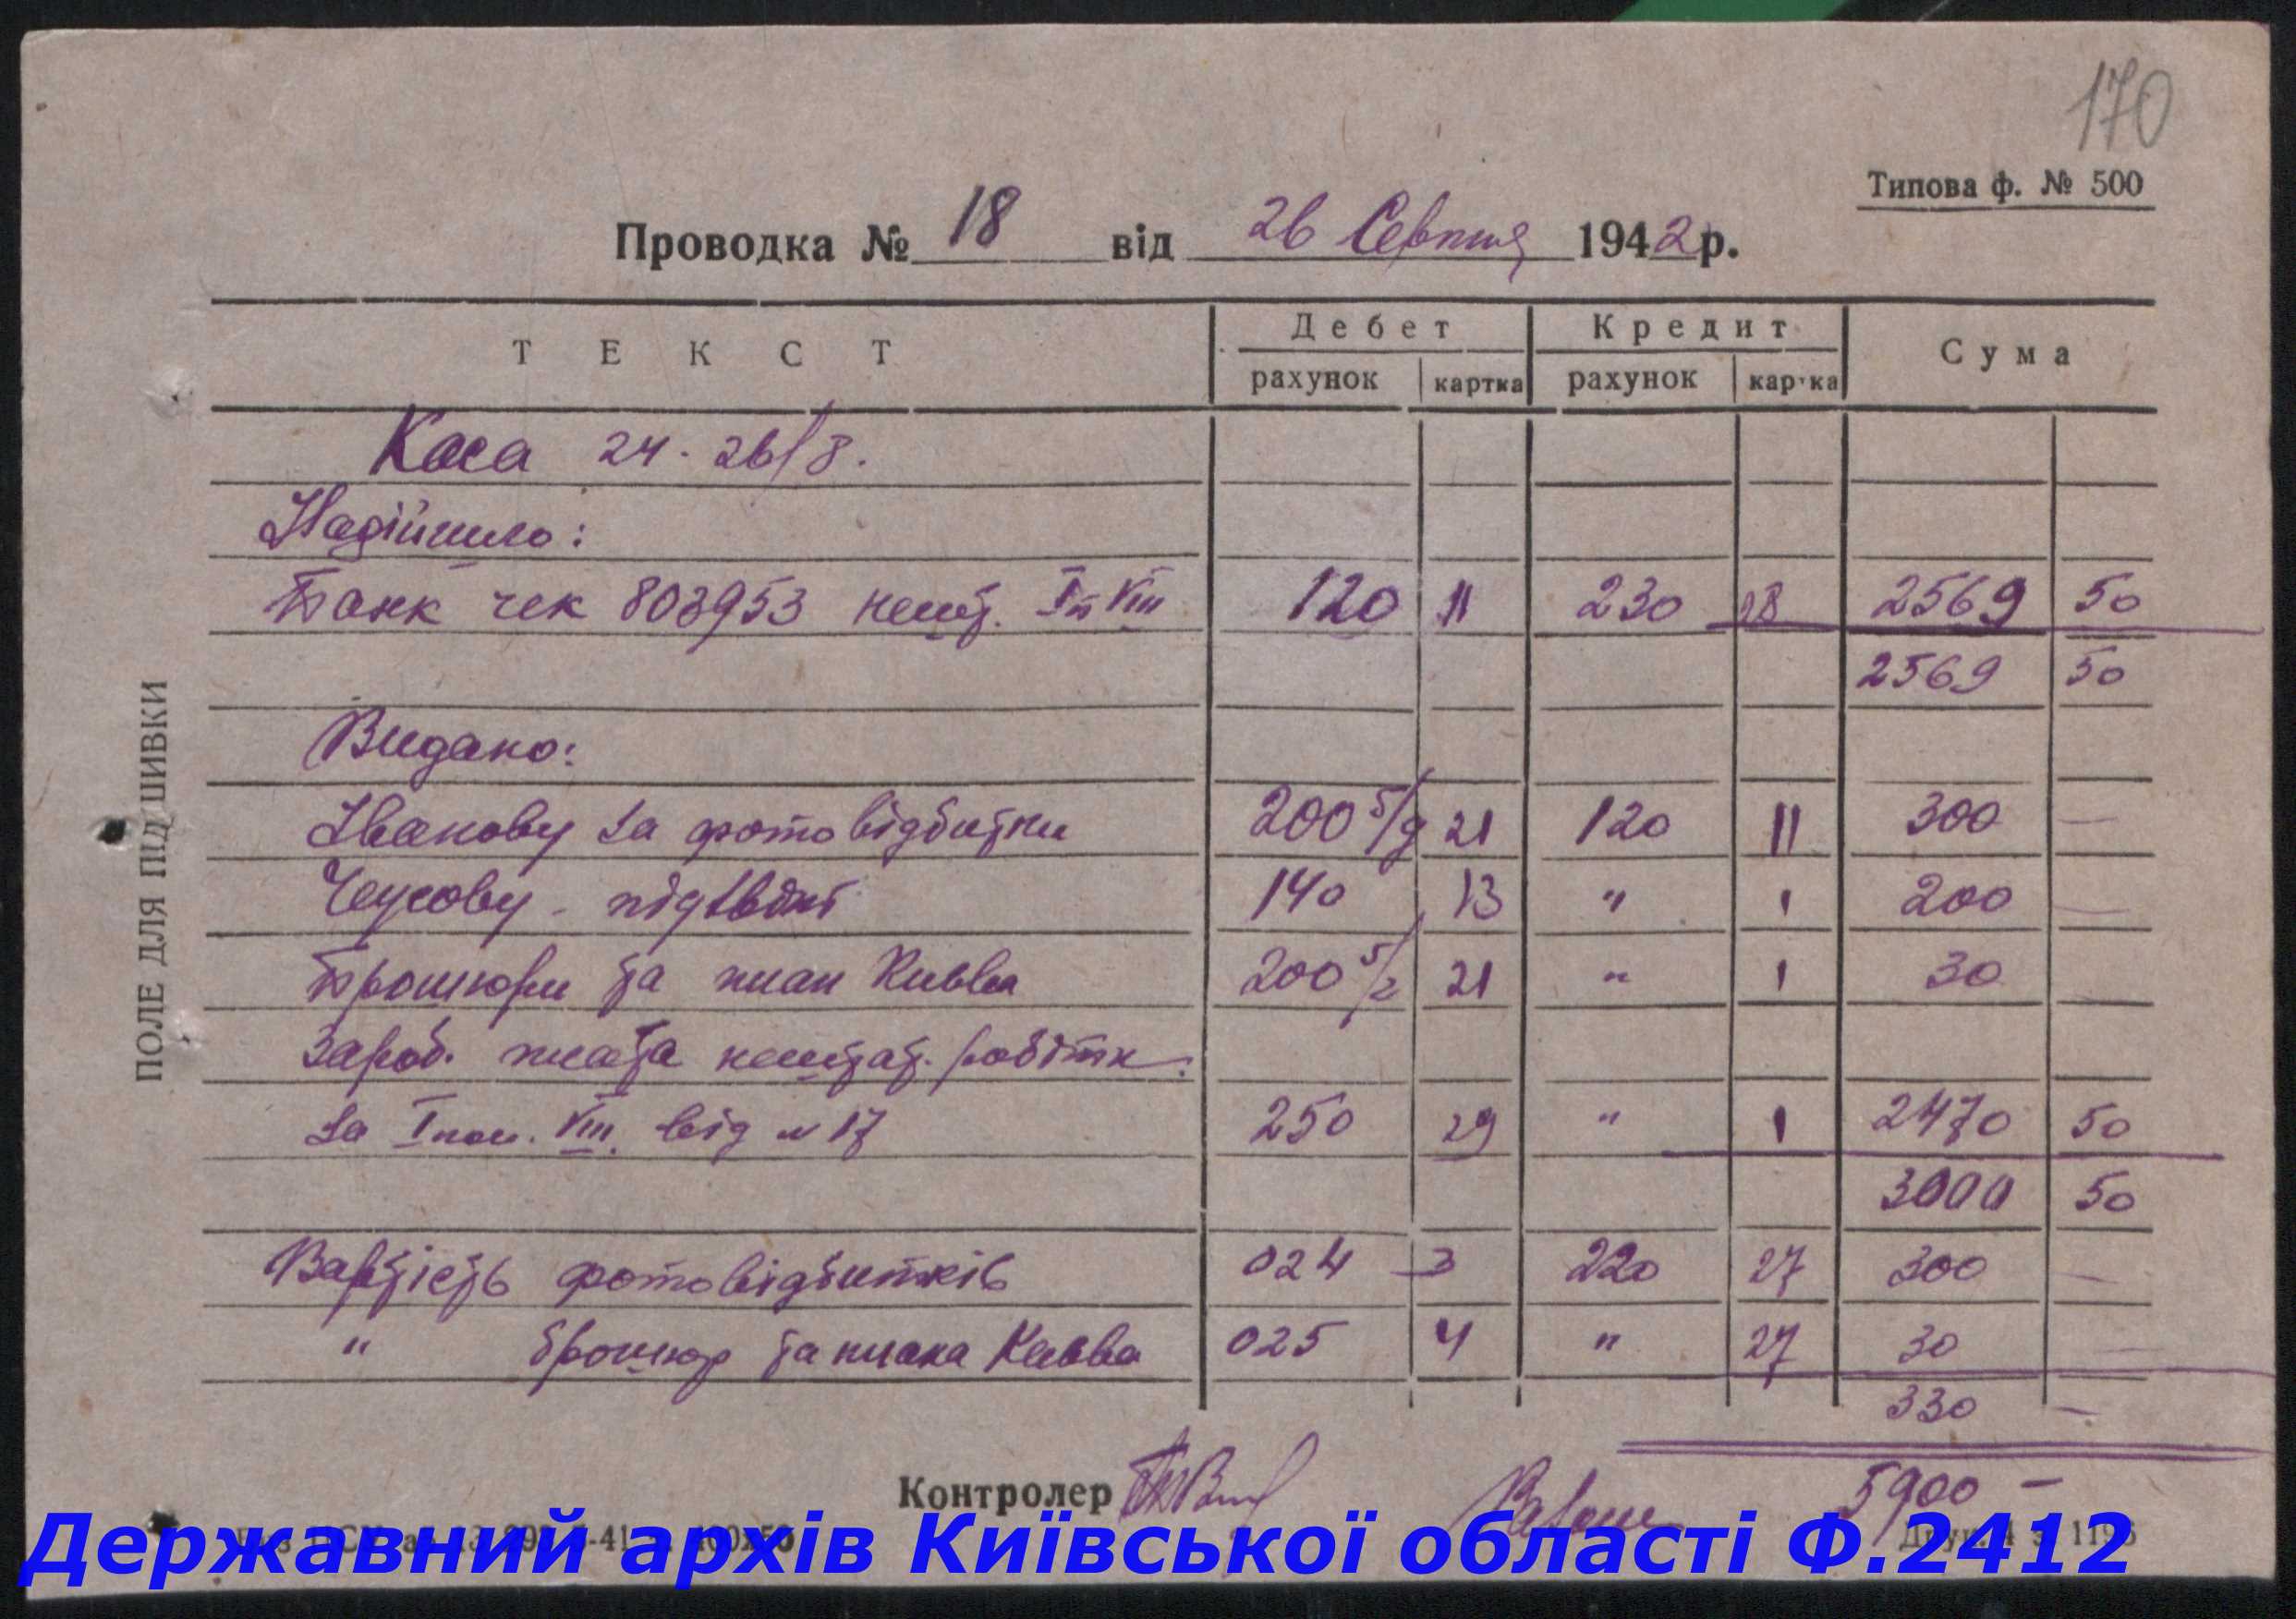 170
Типова ф. № 500
Проводка № 18 від 26 Серпня 1942 р.
ТЕКСТ Дебет Кредит Сума
рахунок картка рахунок картка
Каса 24-26/8.
Надійшло:
Банк чек 803953 нешт. Iп VIII 120 11 230 28 2569 50
2569 50
Видано:
Іванову за фотовідбитки 200 5/д 21 120 11 300 —
Чусову - підзвіт 140 13 " " 200 —
Брошюри та план Києва 200 5/г 21 " " 30 —
Зароб. плата нештат. робітн.
за I пол. VIII. від № 17 250 29 " " 2470 50
3000 50
Вартість фотовідбитків 024 3 220 27 300 —
" брошюр та плана Києва 025 4 " 27 30 —
330 —
Контролер
5900 —
ПОЛЕ ДЛЯ ПІДШИВКИ
Державний архів Київської області Ф.2412